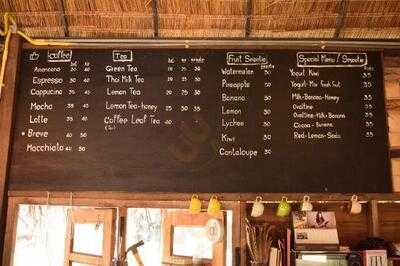 Coffee
Americano 30 40
Espresso 30 40
Cappucino 35 40
Mocha 35 40
Latte 35 40
Breve 40 50
Macchiato 40 50
Tea
Green Tea
Thai Milk Tea
Lemon Tea
Lemon Tea-honey
Coffee Leaf Tea 40
Fruit Smootie
Watermelon 50
Pineapple 50
Banana 50
Lemon 50
Lychee 50
Kiwi 50
Cantaloupe 50
Special Menu / Smootie
Yogurt Kiwi 55
Yogurt-Mix Fresh Fruit 55
Milk-Banana-Honey 55
Ovaltine 55
Ovaltine-Milk-Banana 55
Cocoa - Banana 55
Red-Lemon-Soda 55